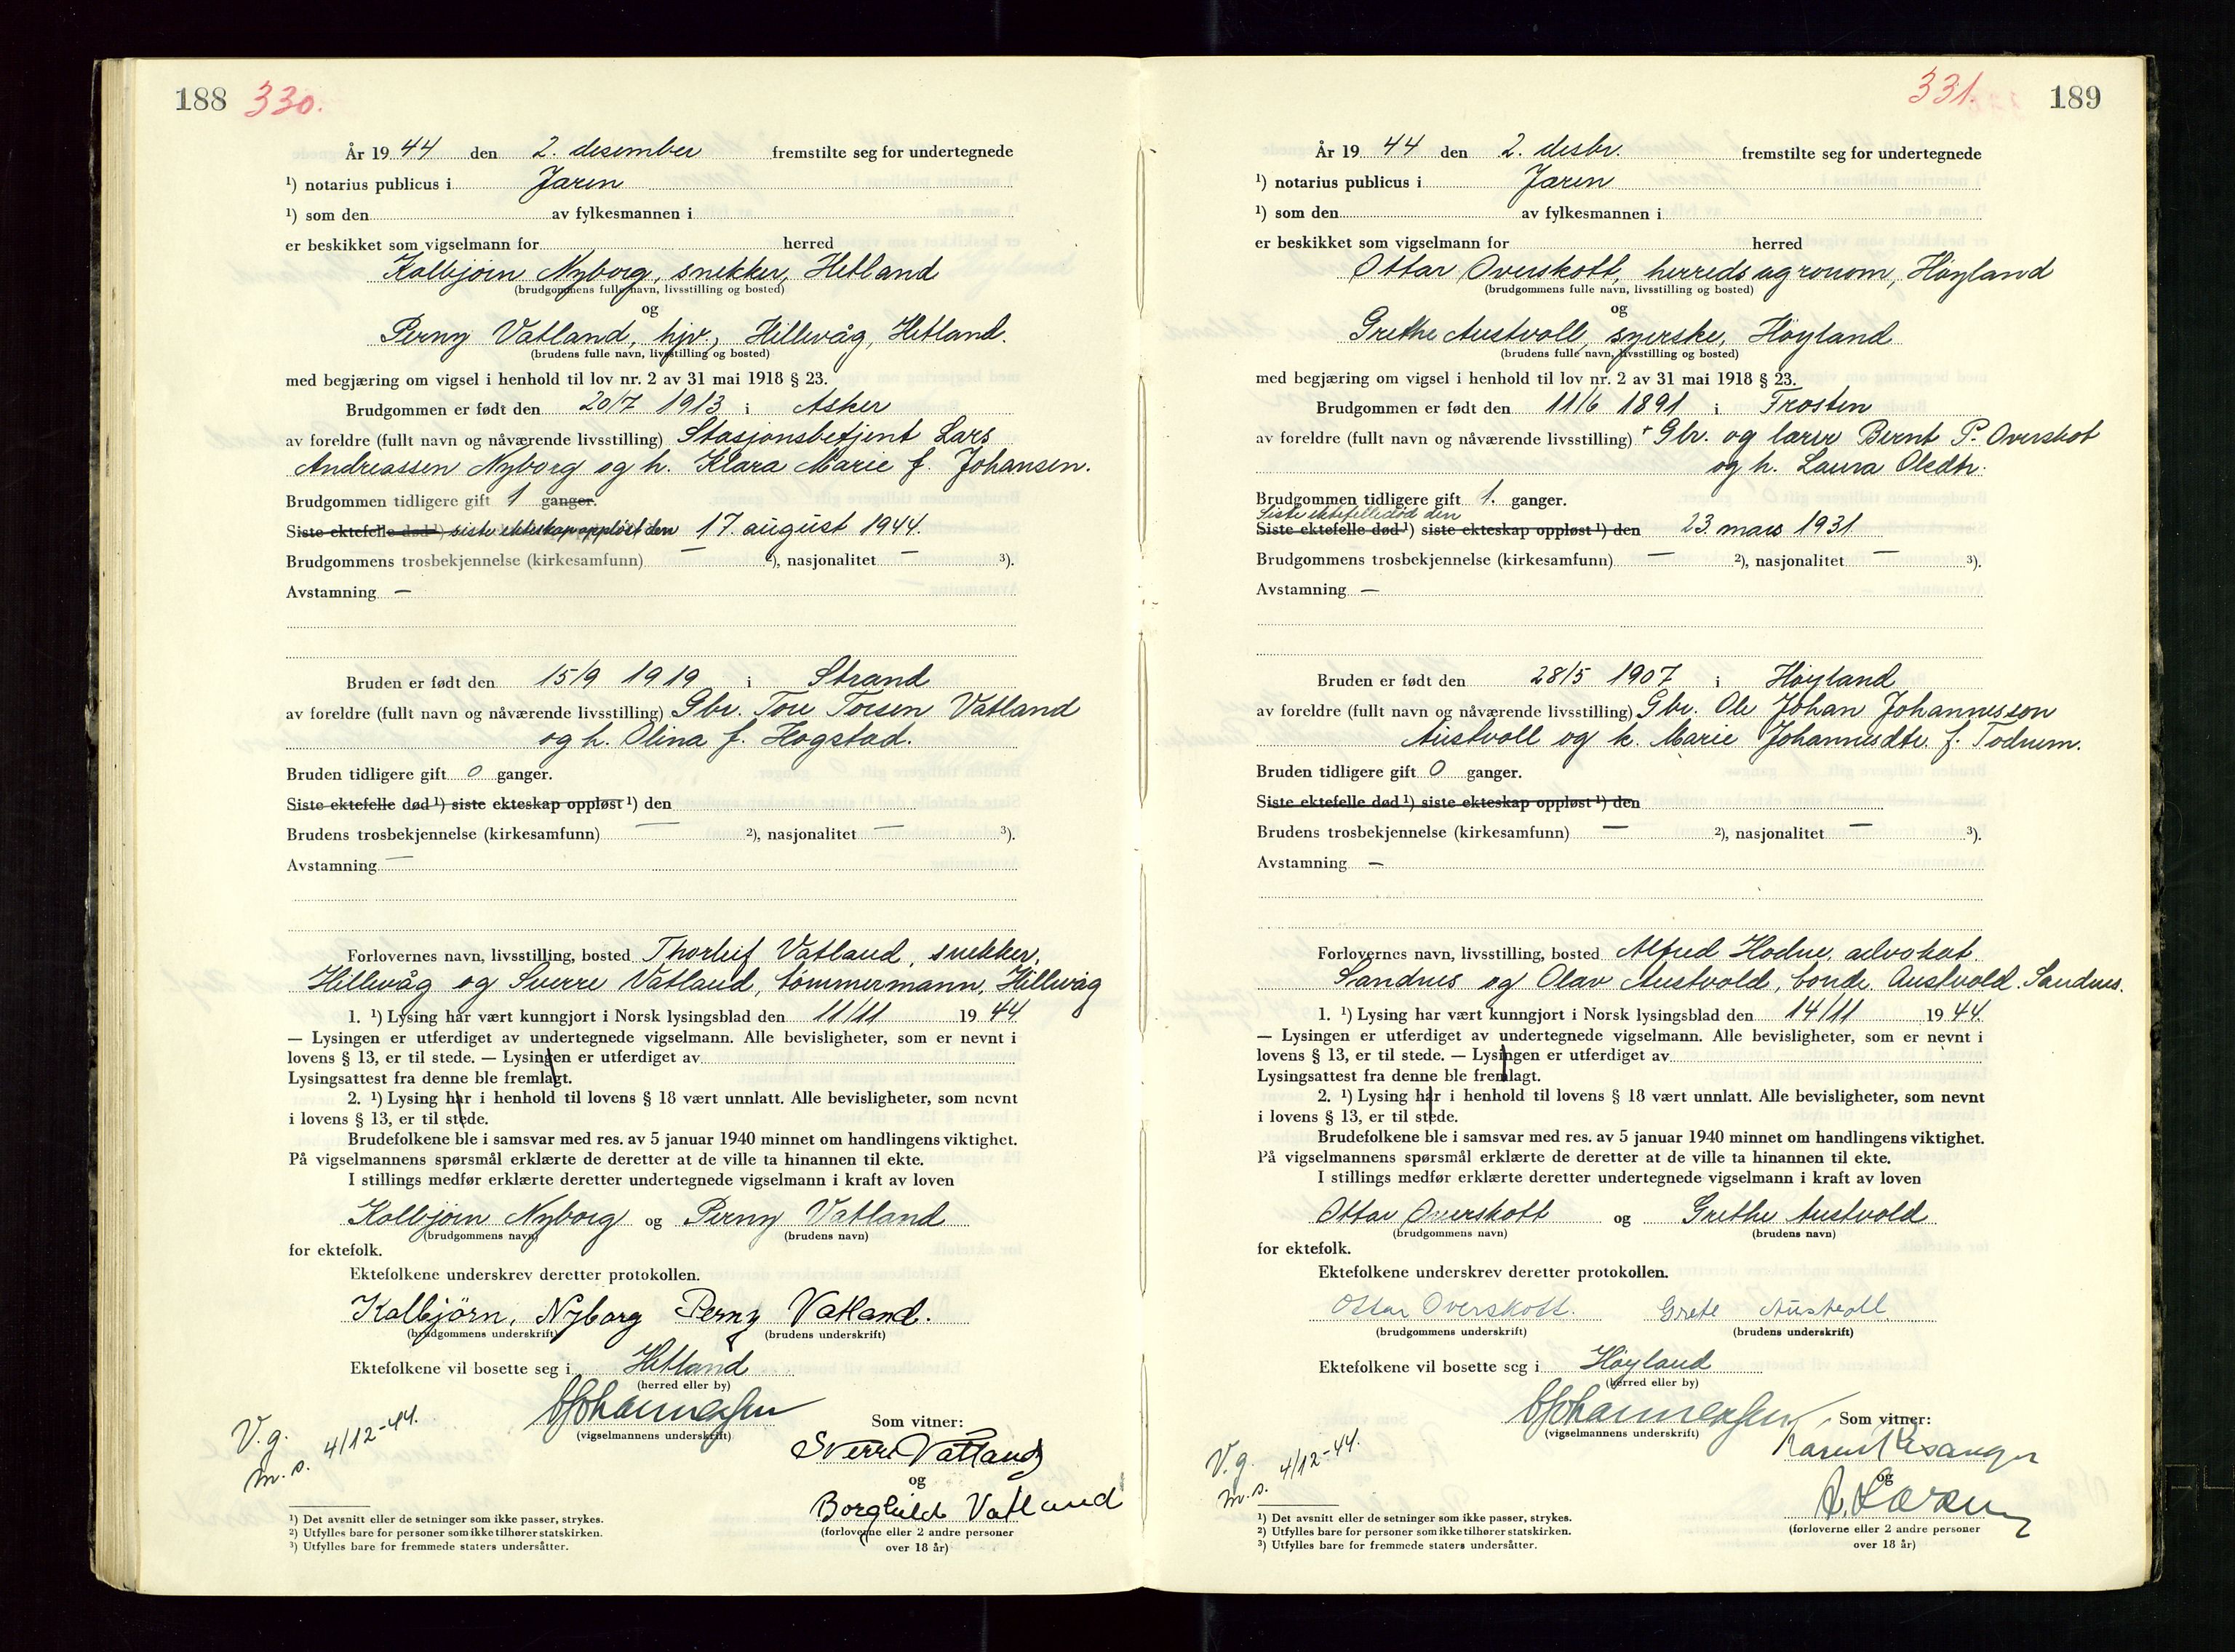 188 330.
År 19 44 den 2. desember fremstilte seg for undertegnede
¹) notarius publicus i Jæren
¹) som den av fylkesmannen i
er beskikket som vigselmann for herred
Kolbjørn Nyborg, snekker, Hetland
(brudgommens fulle navn, livsstilling og bosted)
og
Perny Vatland, hjv., Hillevåg, Hetland.
(brudens fulle navn, livsstilling og bosted)
med begjæring om vigsel i henhold til lov nr. 2 av 31 mai 1918 § 23.
Brudgommen er født den 20/7 1913 i Asker
av foreldre (fullt navn og nåværende livsstilling) Stasjonsbetjent Lars
Andreassen Nyborg og h. Klara Marie f. Johansen.
Brudgommen tidligere gift 1 ganger.
Siste ektefelle død¹) siste ekteskap oppløst den 17. august 1944.
Brudgommens trosbekjennelse (kirkesamfunn) — ²), nasjonalitet — ³).
Avstamning —
Bruden er født den 15/9 1919 i Strand
av foreldre (fullt navn og nåværende livsstilling) Gbr. Tore Torsen Vatland
og h. Olina f. Hogstad.
Bruden tidligere gift 0 ganger.
Siste ektefelle død¹) siste ekteskap oppløst¹) den
Brudens trosbekjennelse (kirkesamfunn) — ²), nasjonalitet — ³).
Avstamning —
Forlovernes navn, livsstilling, bosted Thorleif Vatland, snekker,
Hillevåg og Sverre Vatland, tømmermann, Hillevåg
1. ¹) Lysing har vært kunngjort i Norsk lysingsblad den 11/11 19 44
— Lysingen er utferdiget av undertegnede vigselmann. Alle bevisligheter, som er nevnt i
lovens § 13, er til stede. — Lysingen er utferdiget av
Lysingsattest fra denne ble fremlagt.
2. ¹) Lysing har i henhold til lovens § 18 vært unnlatt. Alle bevisligheter, som nevnt
i lovens § 13, er til stede.
Brudefolkene ble i samsvar med res. av 5 januar 1940 minnet om handlingens viktighet.
På vigselmannens spørsmål erklærte de deretter at de ville ta hinannen til ekte.
I stillings medfør erklærte deretter undertegnede vigselmann i kraft av loven
Kolbjørn Nyborg og Perny Vatland
(brudgommens navn) (brudens navn)
for ektefolk.
Ektefolkene underskrev deretter protokollen.
Kolbjörn, Nyborg Perny Vatland.
(brudgommens underskrift) (brudens underskrift)
Ektefolkene vil bosette seg i Hetland
(herred eller by)
(vigselmannens underskrift)
Som vitner:
V.g. 4/12-44.
m.s.
Sverre Vatland
og
Borghild Vatland
(forloverne eller 2 andre personer
over 18 år)
¹) Det avsnitt eller de setninger som ikke passer, strykes.
²) Utfylles bare for personer som ikke tilhører statskirken.
³) Utfylles bare for fremmede staters undersåtter.
331. 189
År 19 44 den 2. desbr. fremstilte seg for undertegnede
¹) notarius publicus i Jæren
¹) som den av fylkesmannen i
er beskikket som vigselmann for herred
Ottar Overskott, herredsagronom, Høyland
(brudgommens fulle navn, livsstilling og bosted)
og
Grethe Austvoll, syerske, Høyland
(brudens fulle navn, livsstilling og bosted)
med begjæring om vigsel i henhold til lov nr. 2 av 31 mai 1918 § 23.
Brudgommen er født den 11/6 1891 i Frosten
av foreldre (fullt navn og nåværende livsstilling) + Gbr. og lærer Bernt P. Overskot
og h. Laura Olesdtr.
Brudgommen tidligere gift 1. ganger.
Siste ektefelle død den
Siste ektefelle død¹) siste ekteskap oppløst¹) den 23 mars 1931.
Brudgommens trosbekjennelse (kirkesamfunn) — ²), nasjonalitet — ³).
Avstamning —
Bruden er født den 28/5 1907 i Høyland
av foreldre (fullt navn og nåværende livsstilling) Gbr. Ole Johan Johannesson
Austvoll og h. Marie Johannesdtr. f. Todnem.
Bruden tidligere gift 0 ganger.
Siste ektefelle død¹) siste ekteskap oppløst¹) den
Brudens trosbekjennelse (kirkesamfunn) — ²), nasjonalitet — ³).
Avstamning —
Forlovernes navn, livsstilling, bosted Alfred Hodne, advokat.
Sandnes og Olav Austvold, bonde Austvold. Sandnes.
1. ¹) Lysing har vært kunngjort i Norsk lysingsblad den 14/11 19 44.
— Lysingen er utferdiget av undertegnede vigselmann. Alle bevisligheter, som er nevnt i
lovens § 13, er til stede. — Lysingen er utferdiget av
Lysingsattest fra denne ble fremlagt.
2. ¹) Lysing har i henhold til lovens § 18 vært unnlatt. Alle bevisligheter, som nevnt
i lovens § 13, er til stede.
Brudefolkene ble i samsvar med res. av 5 januar 1940 minnet om handlingens viktighet.
På vigselmannens spørsmål erklærte de deretter at de ville ta hinannen til ekte.
I stillings medfør erklærte deretter undertegnede vigselmann i kraft av loven
Ottar Overskott og Grethe Austvold
(brudgommens navn) (brudens navn)
for ektefolk.
Ektefolkene underskrev deretter protokollen.
Ottar Overskott. Grete Austvoll.
(brudgommens underskrift) (brudens underskrift)
Ektefolkene vil bosette seg i Høyland
(herred eller by)
(vigselmannens underskrift)
Som vitner:
V.g. 4/12-44.
m.s.
og
(forloverne eller 2 andre personer
over 18 år)
¹) Det avsnitt eller de setninger som ikke passer, strykes.
²) Utfylles bare for personer som ikke tilhører statskirken.
³) Utfylles bare for fremmede staters undersåtter.